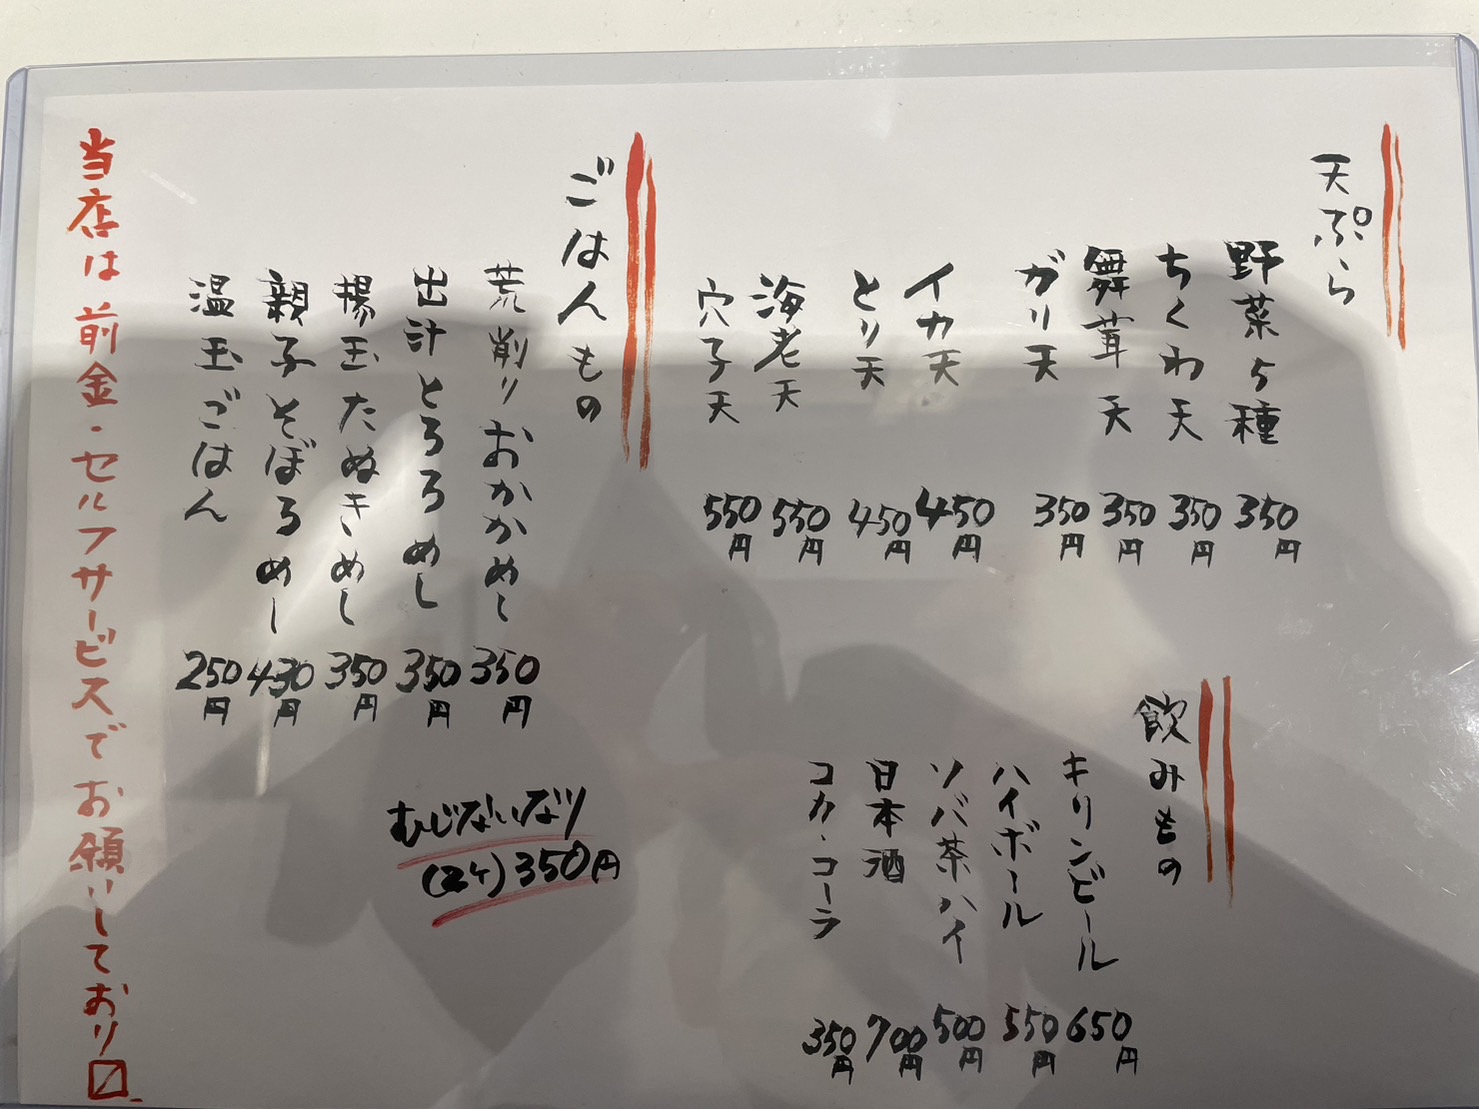 天ぷら
野菜5種 350円
ちくわ天 350円
舞茸天 350円
ガリ天 350円
イカ天 450円
とり天 450円
海老天 550円
穴子天 550円
飲みもの
キリンビール 650円
ハイボール 550円
ソバ茶ハイ 500円
日本酒 700円
コカ・コーラ 350円
ごはんもの
荒削りおかかめし 350円
出汁とろろめし 350円
揚玉たぬきめし 350円
親子そぼろめし 430円
温玉ごはん 250円
むじないなり
(2ケ)350円
当店は前金・セルフサービスでお願いしており〼